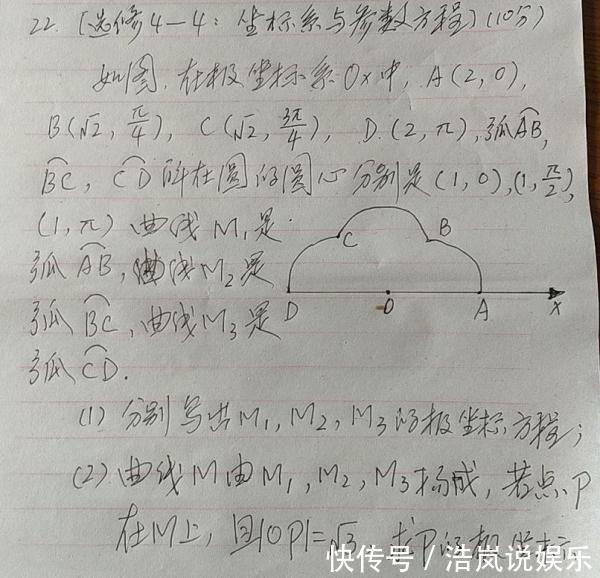 22. [选修4—4：坐标系与参数方程](10分)
如图，在极坐标系Ox中，A(2,0),
B(√2, π/4), C(√2, 3π/4), D(2,π),弧AB,
BC, CD所在圆的圆心分别是(1,0),(1,π/2),
(1,π) 曲线M₁是
弧AB,曲线M₂是
弧BC,曲线M₃是
弧CD.
C B
D O A x
(1) 分别写出M₁, M₂, M₃的极坐标方程；
(2) 曲线M由M₁, M₂, M₃构成，若点P
在M上，且|OP|=√3，求P的极坐标.
快传号/浩岚说娱乐